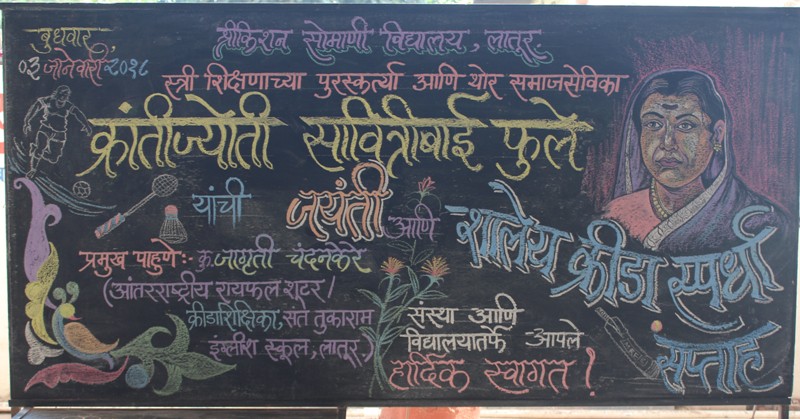 बुधवार,
०३ जानेवारी २०१८
श्रीकिशन सोमाणी विद्यालय, लातूर.
स्त्री शिक्षणाच्या पुरस्कर्त्या आणि थोर समाजसेविका
क्रांतीज्योती सावित्रीबाई फुले
यांची जयंती आणि
शालेय क्रीडा स्पर्धा
सप्ताह
प्रमुख पाहुणे:- कु.जागृती चंदनकेरे
(आंतरराष्ट्रीय रायफल शूटर/
क्रीडाशिक्षिका, संत तुकाराम
इंग्लीश स्कूल, लातूर.)
संस्था आणि
विद्यालयातर्फे आपले
हार्दिक स्वागत!